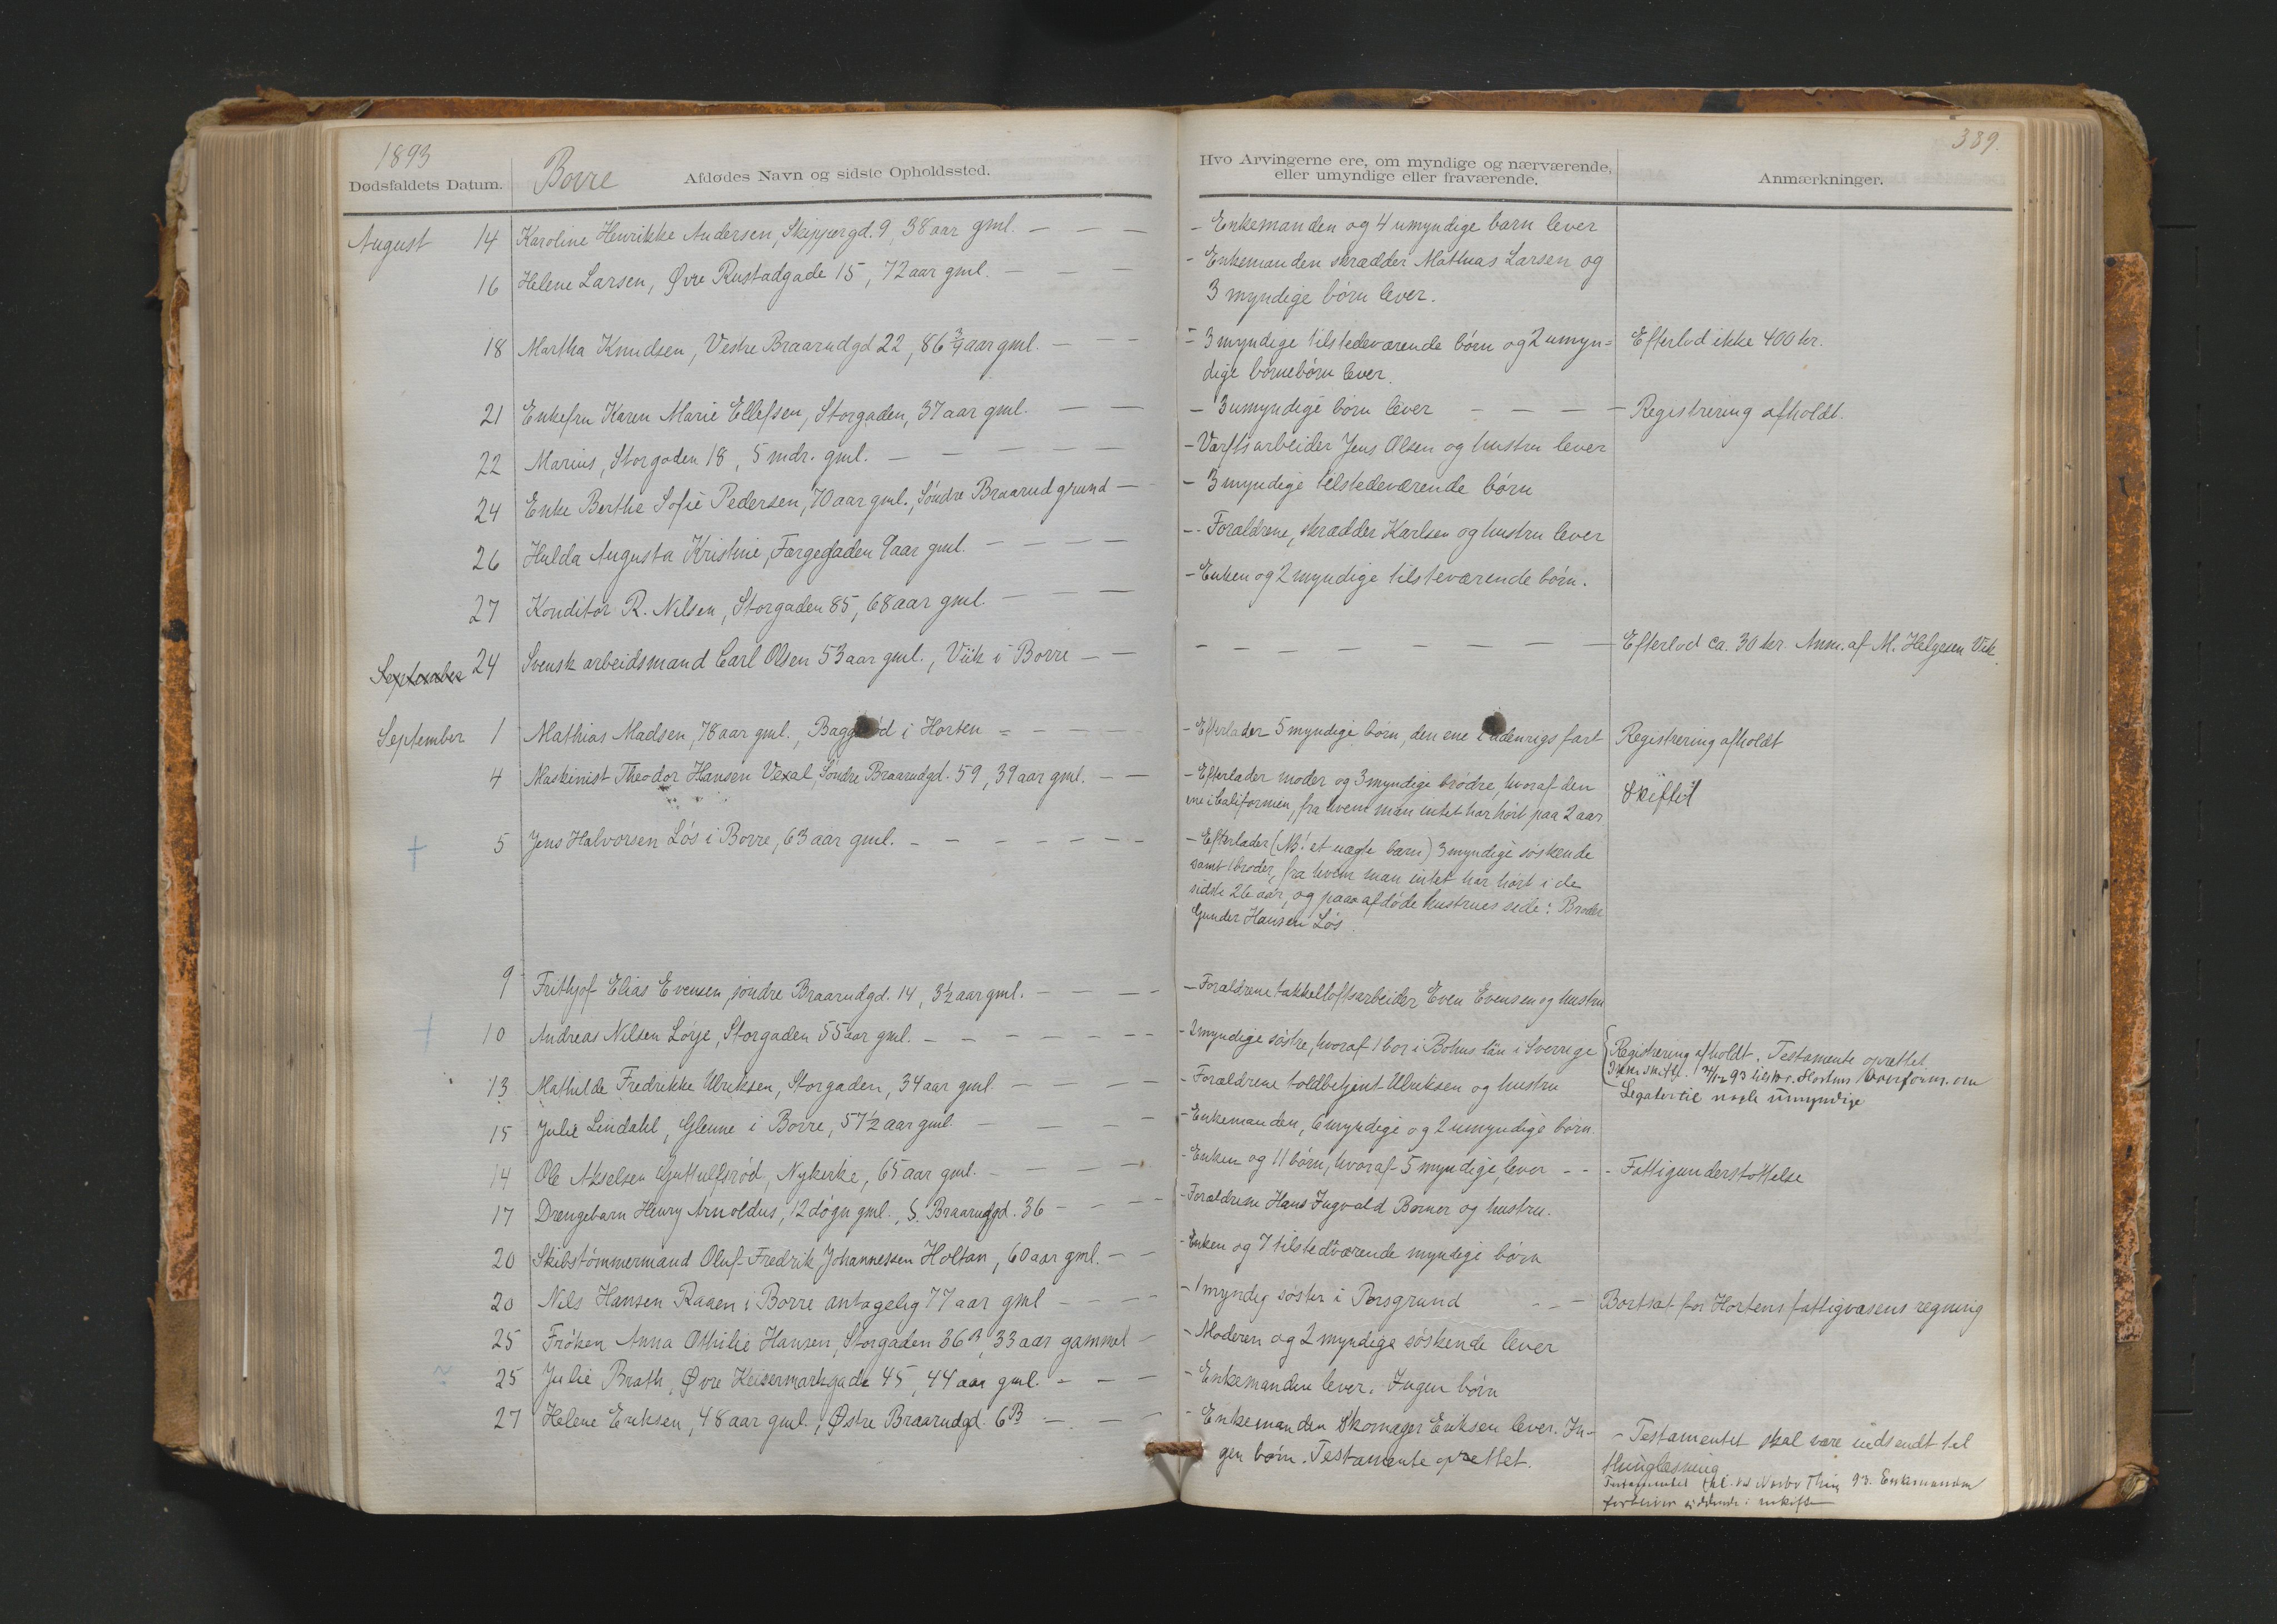 1893
339.
Dødsfaldets Datum.
Borre
Afdødes Navn og sidste Opholdssted.
Hvo Arvingerne ere, om myndige og nærværende,
eller umyndige eller fraværende.
Anmærkninger.
August 14 Karoline Henrikke Andersen, Skippergd. 9, 38 aar gml. — — — - Enkemanden og 4 umyndige barn lever
16 Helene Larsen, Øvre Rustadgade 15, 72 aar gml. — — — - Enkemanden skrædder Mathias Larsen og
3 myndige børn lever.
18 Martha Knudsen, Vestre Braarudgd 22, 86 3/4 aar gml. — — — - 3 myndige tilstedeværende børn og 2 umyn= Efterlod ikke 400 kr.
dige børnebørn lever.
21 Enkefru Karen Marie Ellefsen, Storgaden, 37 aar gml. — — - 3 umyndige børn lever — — — — Registrering afholdt.
22 Marius, Storgaden 18, 5 mdr. gml. — — — — — - Værftsarbeider Jens Olsen og hustru lever
24 Enke Berthe Sofie Pedersen, 70 aar gml., Søndre Braarud grund — - 3 myndige tilstedeværende børn
26 Hulda Augusta Kristine, Færgegaden 9 aar gml. — — — — - Forældrene, skrædder Karlsen og hustru lever
27 Konditor R. Nilsen, Storgaden 85, 68 aar gml. — — — - Enken og 2 myndige tilsteværende børn.
September 24 Svensk arbeidsmand Carl Olsen 53 aar gml., Viik i Borre — — - — — — — — — — — Efterlod ca. 30 kr. Anm. af M. Helgesen Vik.
September 1 Mathias Madsen, 78 aar gml., Baggerød i Horten = — — — - Efterlader 5 myndige børn, den ene i udenrigs fart Registrering afholdt
4 Maskinist Theodor Hansen Vexal, Søndre Braarudgd. 59, 39 aar gml. — — - Efterlader moder og 3 myndige brødre, hvoraf den Skiftet
ene i Californien, fra hvem man intet har hørt paa 2 aar
5 Jens Halvorsen Løs i Borre, 63 aar gml. — — — — — — - Efterlader (NB! et uægte barn) 3 myndige søskende
samt 1 broder, fra hvem man intet har hørt i de
sidste 26 aar, og paa afdøde hustrues side: Broder
Gunder Hansen Løs.
9 Frithjof Elias Evensen, søndre Braarudgd. 14, 3½ aar gml. — — — — - Forældrene takkelloftsarbeider Even Evensen og hustru
10 Andreas Nilsen Lorje, Storgaden 55 aar gml. — — — — — — - 2 myndige søstre, hvoraf 1 bor i Bohus län i Sverrige Registrering afholdt. Testamente oprettet.
13 Mathilde Fredrikke Ulriksen, Storgaden, 34 aar gml. — — — — - Forældrene toldbetjent Ulriksen og hustru 93 Hortens Overform. om
Legater til nogle umyndige
15 Julie Lindahl, Glenne i Borre, 57½ aar gml. — — — — - Enkemanden, 6 myndige og 2 umyndige børn.
14 Ole Akselsen Guttulfsrød, Nykirke, 65 aar gml. — — — — - Enken og 11 børn, hvoraf 5 myndige, lever — — - Fattigunderstøttelse
17 Drængebarn Henry Arnoldus, 12 døgn gml., S. Braarudgd. 36 — — — - Forældrene Hans Ingvald Berner og hustru.
20 Skibstømmermand Oluf Fredrik Johannessen Holtan, 60 aar gml. — — - Enken og 7 tilstedværende myndige børn
20 Nils Hansen Raaen i Borre antagelig 77 aar gml — — — - 1 myndig søster i Porsgrund — — — Bortsat for Hortens fattigvæsens regning
25 Frøken Anna Othilie Hansen, Storgaden 36 B, 33 aar gammel — - Moderen og 2 myndige søskende lever
25 Julie Brath, Øvre Keisermarkgade 45, 44 aar gml. — — — - Enkemanden lever. Ingen børn
27 Helene Eriksen, 48 aar gml., Østre Braarudgd. 6 B — — — - Enkemanden Skomager Eriksen lever. In- - Testamentet skal være indsendt til
gen børn. Testamente oprettet. thinglæsning
Testamentet Thing 93. Enkemanden